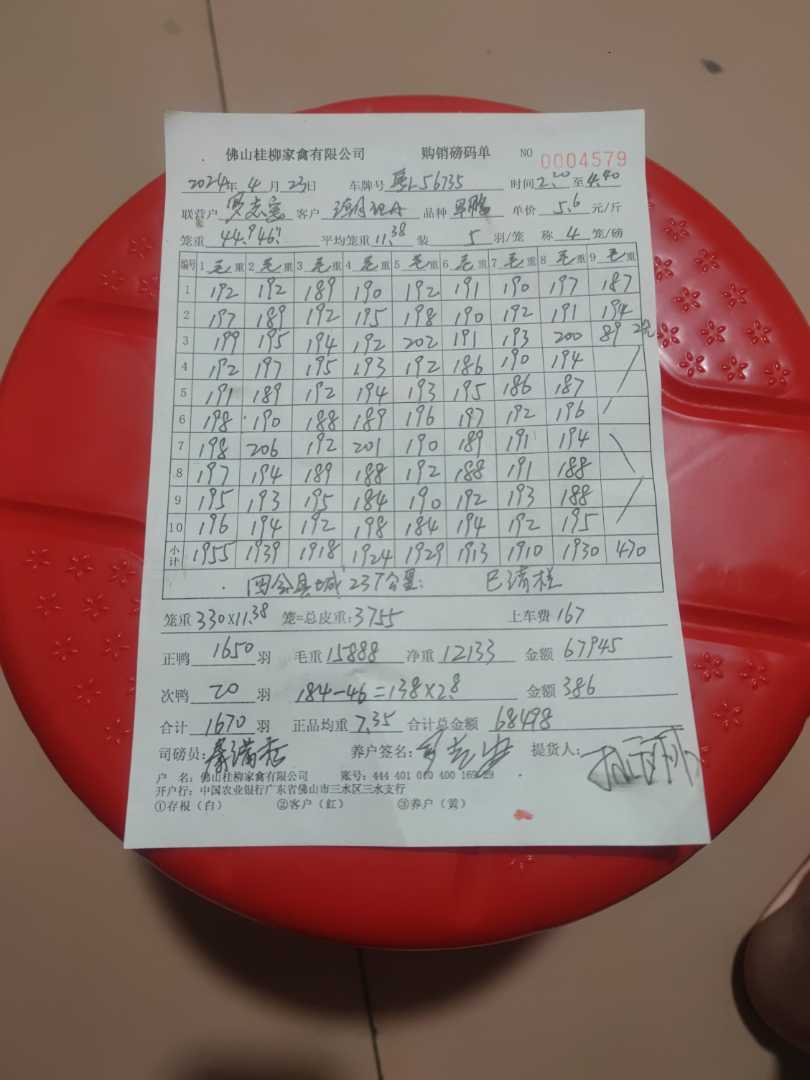 佛山桂柳家禽有限公司 购销磅码单 NO 0004579
2024年 4月 23日 车牌号 粤L56735 时间 2.20 至 4.40
联营户 罗志 客户 品种 单价 5.6 元/斤
笼重 44.9 46.1 平均笼重 11.38 装 5 羽/笼 称 4 笼/磅
编号 1 毛重 2 毛重 3 毛重 4 毛重 5 毛重 6 毛重 7 毛重 8 毛重 9 毛重
1 192 192 189 190 192 191 190 197 187
2 197 189 192 195 198 190 192 191 194
3 199 195 194 192 202 191 193 200 89 2笼
4 192 197 195 193 192 186 190 194
5 191 189 192 194 193 195 186 187
6 198 190 188 189 196 197 192 196
7 198 206 192 201 190 189 191 194
8 197 194 189 188 192 188 191 188
9 195 193 195 184 190 192 193 188
10 196 194 192 198 184 194 192 195
小计 1955 1939 1918 1924 1929 1913 1910 1930 470
县城 237公里 已清栏
笼重 330×11.38 笼=总皮重: 3755 上车费 167
正鸭 1650 羽 毛重 15888 净重 12133 金额 67945
次鸭 20 羽 184-46=138×2.8 金额 386
合计 1670 羽 正品均重 7.35 合计总金额 68498
司磅员: 养户签名: 提货人:
户 名: 佛山桂柳家禽有限公司 账号: 444 401 010 400 169 29
开户行: 中国农业银行广东省佛山市三水区三水支行
①存根(白) ②客户(红) ③养户(黄)